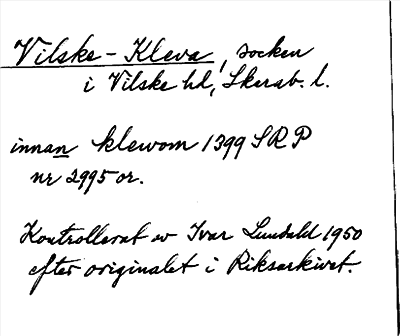 Vilske-Kleva, socken
i Vilske hd, Skarab. l.
innan klewom 1399 SRP
nr 2995 or.
Kontrollerat av Ivar Lundahl 1950
efter originalet i Riksarkivet.